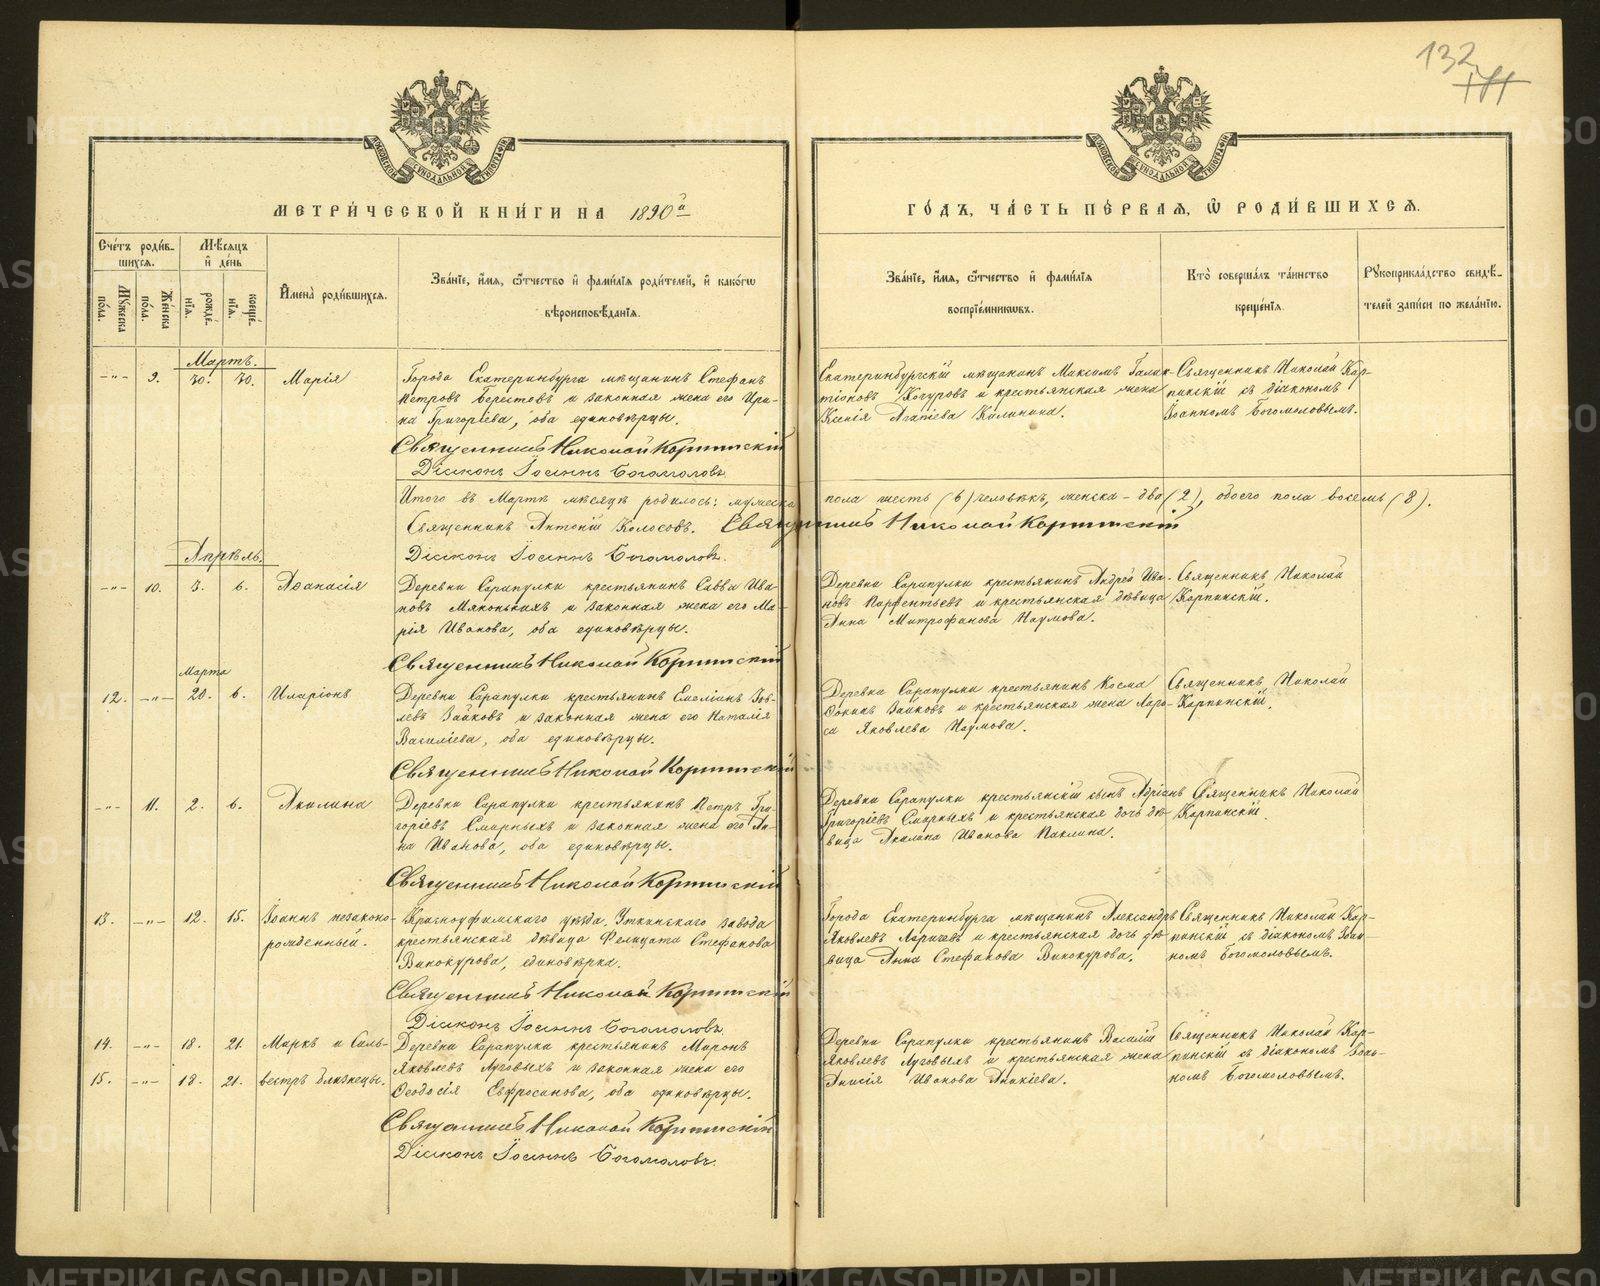 132
МЕТРИ́ЧЕСКОЙ КНИ́ГИ НА 1890й
ГО́ДЪ, ЧА́СТЬ ПЕ́РВАЯ, Ѡ РОДИ́ВШИХСЯ.
Сче́тъ роди́в-
шихся.
Му́жеска пола.
Же́нска пола.
Мѣ́сяцъ
и҆ де́нь
рожде́-
нїѧ.
креще́-
нїѧ.
И҆мена̀ роди́вшихся.
Зва́нїе, и҆́мя, ѻ҆́тчество и҆ фами́лїя роди́телей, и҆ како́гѡ
вѣроисповѣ́данїя.
Зва́нїе, и҆́мя, ѻ҆́тчество и҆ фами́лїя
воспрїе́мникѡвъ.
Кто̀ соверша́лъ та́инство
креще́нїя.
Рꙋкоприкла́дство свидѣ́-
телей за́писи по жела́нїю.
Мартъ.
-"- 9. 30. 30. Марія
Города Екатеринбурга мѣщанинъ Стефанъ
Петровъ Берестовъ и законная жена его Ири-
на Григоріева, оба единовѣрцы.
Священникъ Николай Карпинскій
Діаконъ Іоаннъ Богомоловъ
Екатеринбургскій мѣщанинъ Максимъ Галак-
тіоновъ Кочуровъ и крестьянская жена
Ксенія Агапіева Калинина.
Священникъ Николай Кар-
пинскій съ діакономъ
Іоанномъ Богомоловымъ.
Итого въ Мартѣ мѣсяцѣ родилось: мужеска пола шесть (6) человѣкъ, женска - два (2), обоего пола восемь (8).
Священникъ Антоній Колосовъ. Священникъ Николай Карпинскій
Діаконъ Іоаннъ Богомоловъ.
Апрѣль.
-"- 10. 3. 6. Аѳанасія
Деревни Сарапулки крестьянинъ Савва Ива-
новъ Мяконькихъ и законная жена его Ма-
рія Иванова, оба единовѣрцы.
Священникъ Николай Карпинскій
Деревни Сарапулки крестьянинъ Андрей Ива-
новъ Парфентьевъ и крестьянская дѣвица
Анна Митрофанова Наумова.
Священникъ Николай
Карпинскій.
Марта
12. -"- 20. 6. Иларіонъ
Деревни Сарапулки крестьянинъ Емеліанъ Іов-
левъ Зайковъ и законная жена его Наталія
Василіева, оба единовѣрцы.
Священникъ Николай Карпинскій
Деревни Сарапулки крестьянинъ Косма
Зайковъ и крестьянская жена Лари-
са Яковлева Наумова.
Священникъ Николай
Карпинскій.
-"- 11. 2. 6. Акилина
Деревни Сарапулки крестьянинъ Петръ Гри-
горіевъ Смирныхъ и законная жена его Ан-
на Иванова, оба единовѣрцы.
Священникъ Николай Карпинскій
Деревни Сарапулки крестьянскій сынъ Адріанъ
Григоріевъ Смирныхъ и крестьянская дочь дѣ-
вица Акилина Иванова Паклина.
Священникъ Николай
Карпинскій.
13. -"- 12. 15. Іоаннъ незаконо-
рожденный.
Красноуфимскаго уѣзда, Уткинскаго завода
крестьянская дѣвица Фелицата Стефанова
Винокурова, единовѣрка.
Священникъ Николай Карпинскій
Діаконъ Іоаннъ Богомоловъ
Города Екатеринбурга мѣщанинъ Александръ
Яковлевъ Ларичевъ и крестьянская дочь дѣ-
вица Анна Стефанова Винокурова.
Священникъ Николай Кар-
пинскій съ діакономъ Іоан-
номъ Богомоловымъ.
14. -"- 18. 21. Маркъ и Силь-
15. -"- 18. 21. вестръ близнецы.
Деревни Сарапулки крестьянинъ Миронъ
Яковлевъ Луговыхъ и законная жена его
Ѳеодосія Евфросинова, оба единовѣрцы.
Священникъ Николай Карпинскій
Діаконъ Іоаннъ Богомоловъ.
Деревни Сарапулки крестьянинъ Василій
Яковлевъ Луговыхъ и крестьянская жена
Анисія Иванова Аникіева.
Священникъ Николай Кар-
пинскій съ діакономъ Іоан-
номъ Богомоловымъ.
METRIKI.GASO-URAL.RU